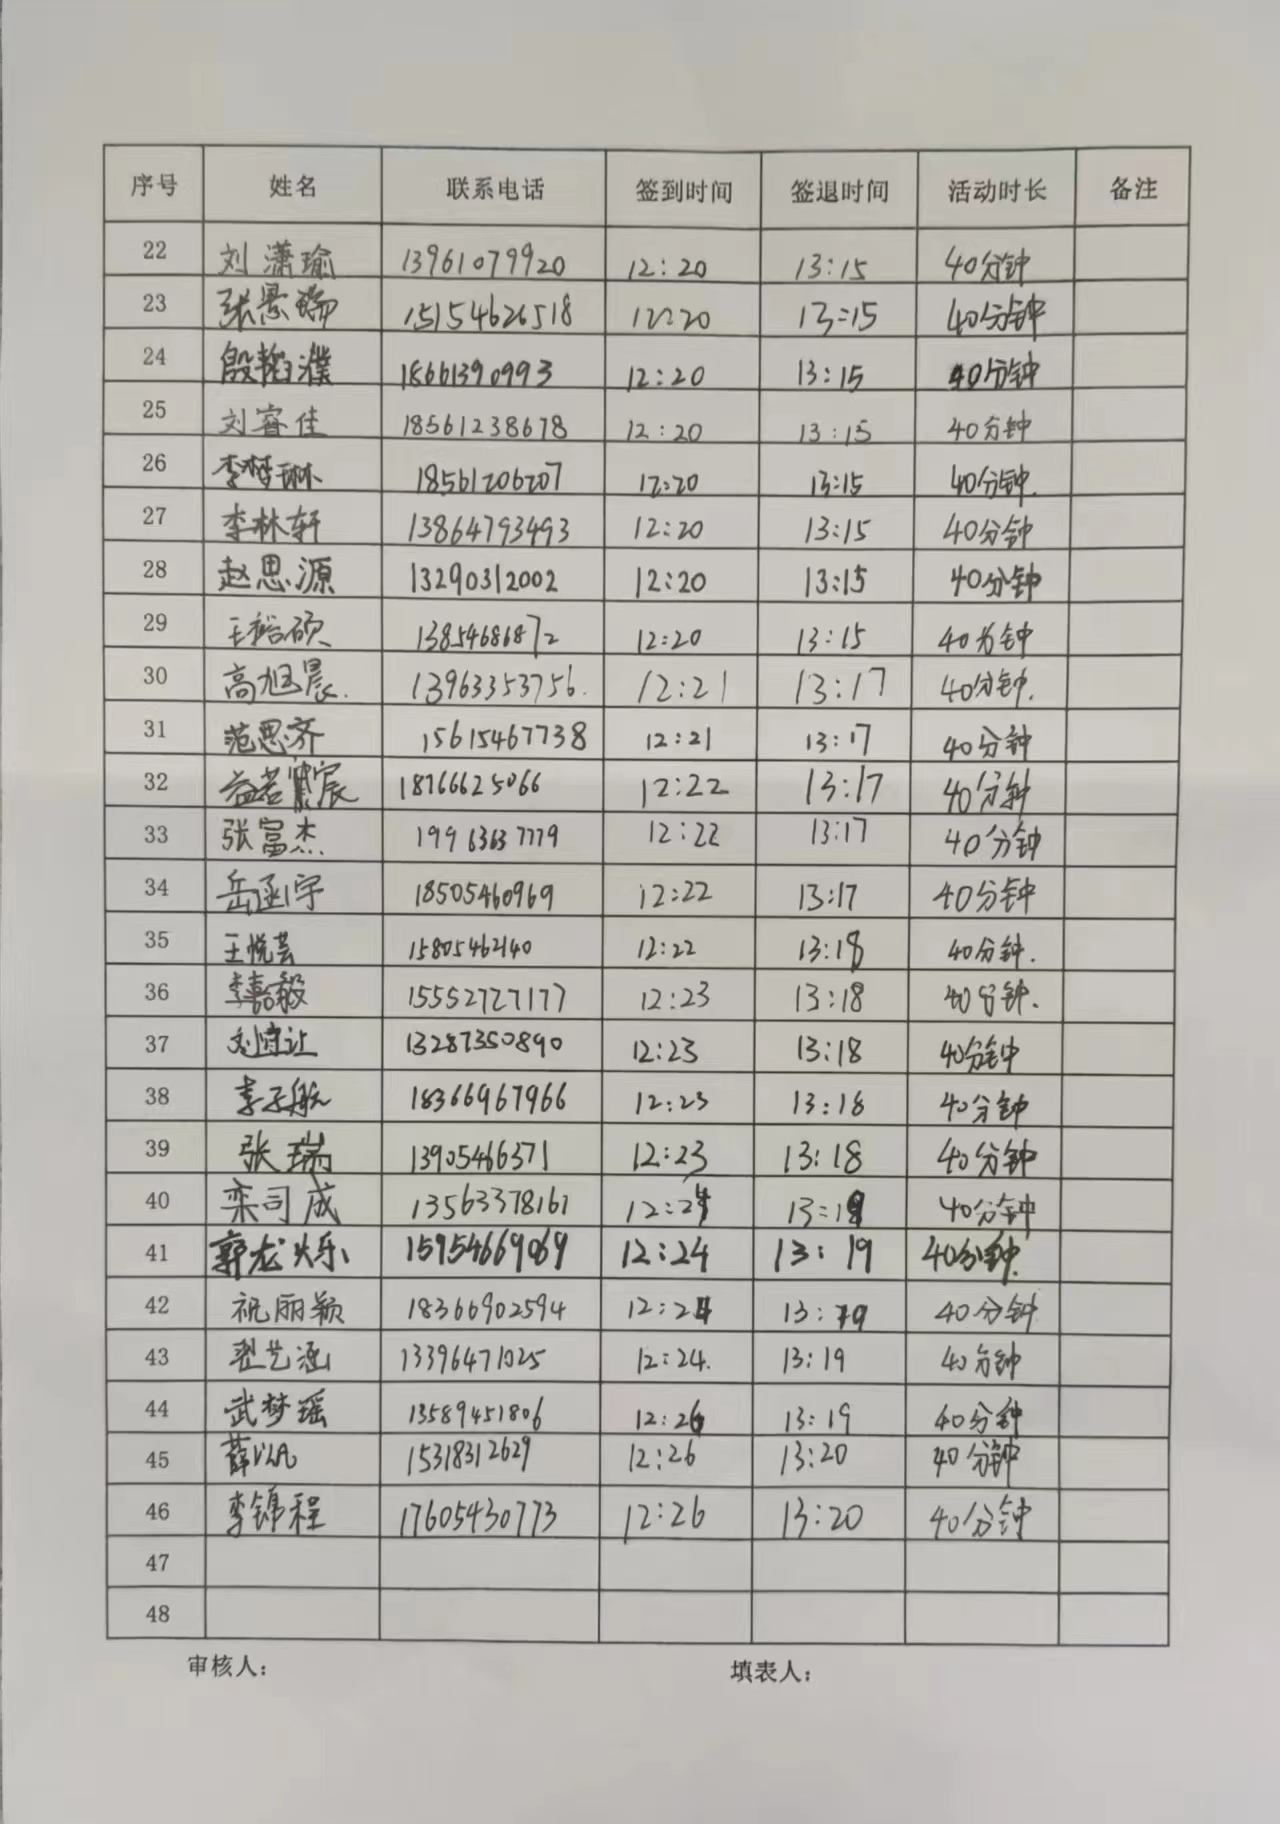 序号 姓名 联系电话 签到时间 签退时间 活动时长 备注
22 刘潇瑜 13961079920 12:20 13:15 40分钟
23 张景瑞 15154626518 12:20 13:15 40分钟
24 殷韬濮 18661390993 12:20 13:15 40分钟
25 刘睿佳 18561238678 12:20 13:15 40分钟
26 李梦琳 18561206207 12:20 13:15 40分钟.
27 李林轩 13864793493 12:20 13:15 40分钟
28 赵思源 13290312002 12:20 13:15 40分钟
29 王裕硕 13854686872 12:20 13:15 40分钟
30 高旭晨. 13963353756. 12:21 13:17 40分钟.
31 范思齐 15615467738 12:21 13:17 40分钟
32 益若宸 18766625066 12:22 13:17 40分钟
33 张富杰 19963637779 12:22 13:17 40分钟
34 岳函宇 18505460969 12:22 13:17 40分钟
35 王悦芸 15805462140 12:22 13:18 40分钟.
36 李嘉毅 15552727177 12:23 13:18 40分钟.
37 刘守让 13287350890 12:23 13:18 40分钟
38 李子航 18366967966 12:23 13:18 40分钟
39 张瑞 13905466371 12:23 13:18 40分钟
40 栾司成 13563378161 12:24 13:19 40分钟
41 郭龙烁 15954669069 12:24 13:19 40分钟.
42 祝丽颖 18366902594 12:24 13:19 40分钟
43 翟艺涵 13396471025 12:24. 13:19 40分钟
44 武梦瑶 13589451806 12:26 13:19 40分钟
45 薛以凡 15318312629 12:26 13:20 40分钟
46 李锦程 17605430773 12:26 13:20 40分钟
47
48
审核人： 填表人：